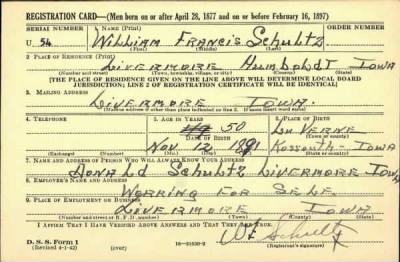 REGISTRATION CARD—(Men born on or after April 28, 1877 and on or before February 16, 1897)
SERIAL NUMBER 1. NAME (Print) ORDER NUMBER
U. 54 William Francis Schultz
(First) (Middle) (Last)
2. PLACE OF RESIDENCE (Print)
Livermore Humboldt Iowa
(Number and street) (Town, township, village, or city) (County) (State)
[THE PLACE OF RESIDENCE GIVEN ON THE LINE ABOVE WILL DETERMINE LOCAL BOARD
JURISDICTION; LINE 2 OF REGISTRATION CERTIFICATE WILL BE IDENTICAL]
3. MAILING ADDRESS
Livermore Iowa.
[Mailing address if other than place indicated on line 2. If same insert word same]
4. TELEPHONE 5. AGE IN YEARS 6. PLACE OF BIRTH
50 Lu Verne
DATE OF BIRTH (Town or county)
Nov 12, 1891 Kossouth - Iowa
(Exchange) (Number) (Mo.) (Day) (Yr.) (State or country)
7. NAME AND ADDRESS OF PERSON WHO WILL ALWAYS KNOW YOUR ADDRESS
Donald Schultz Livermore Iowa
8. EMPLOYER'S NAME AND ADDRESS
Working for Self.
9. PLACE OF EMPLOYMENT OR BUSINESS
Livermore Iowa
(Number and street or R. F. D. number) (Town) (County) (State)
I AFFIRM THAT I HAVE VERIFIED ABOVE ANSWERS AND THAT THEY ARE TRUE.
D. S. S. Form 1
(Revised 4-1-42) (over) Schultz
(Registrant's signature)